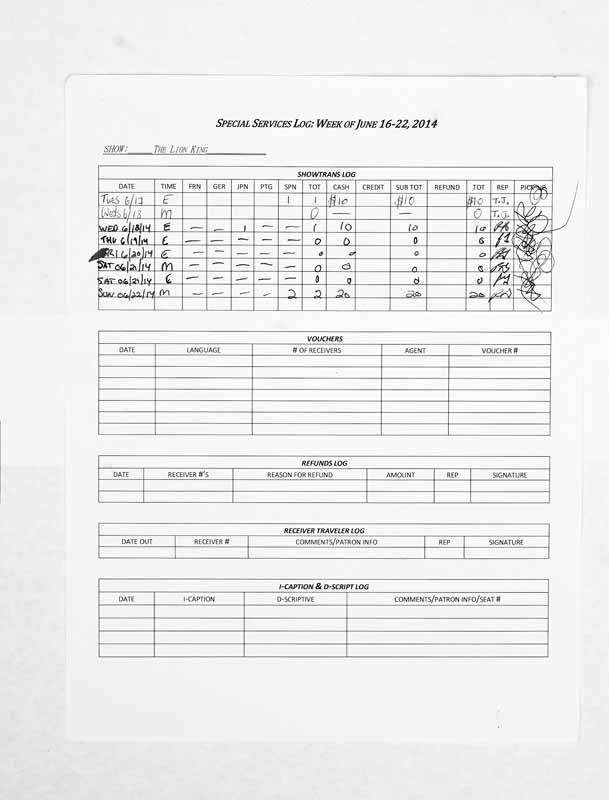 SPECIAL SERVICES LOG: WEEK OF JUNE 16-22, 2014
SHOW: THE LION KING
SHOWTRANS LOG
DATE TIME FRN GER JPN PTG SPN TOT CASH CREDIT SUB TOT REFUND TOT REP
TUES 6/17 E 1 1 $10 $10 $10 T.J.
Weds 6/18 M 0 — — 0 T.J.
WED 6/18/14 E — — 1 — — 1 10 10 10
THU 6/19/14 E — — — — — 0 0 0 0
FRI 6/20/14 E — — — — — 0 0 0 0
SAT 06/21/14 M — — — — — 0 0 0 0
SAT 06/21/14 E — — — — — 0 0 0 0
SUN 06/22/14 M — — — — 2 2 20 20 20
VOUCHERS
DATE LANGUAGE # OF RECEIVERS AGENT VOUCHER #
REFUNDS LOG
DATE RECEIVER #'S REASON FOR REFUND AMOUNT REP SIGNATURE
RECEIVER TRAVELER LOG
DATE OUT RECEIVER # COMMENTS/PATRON INFO REP SIGNATURE
I-CAPTION & D-SCRIPT LOG
DATE I-CAPTION D-SCRIPTIVE COMMENTS/PATRON INFO/SEAT #